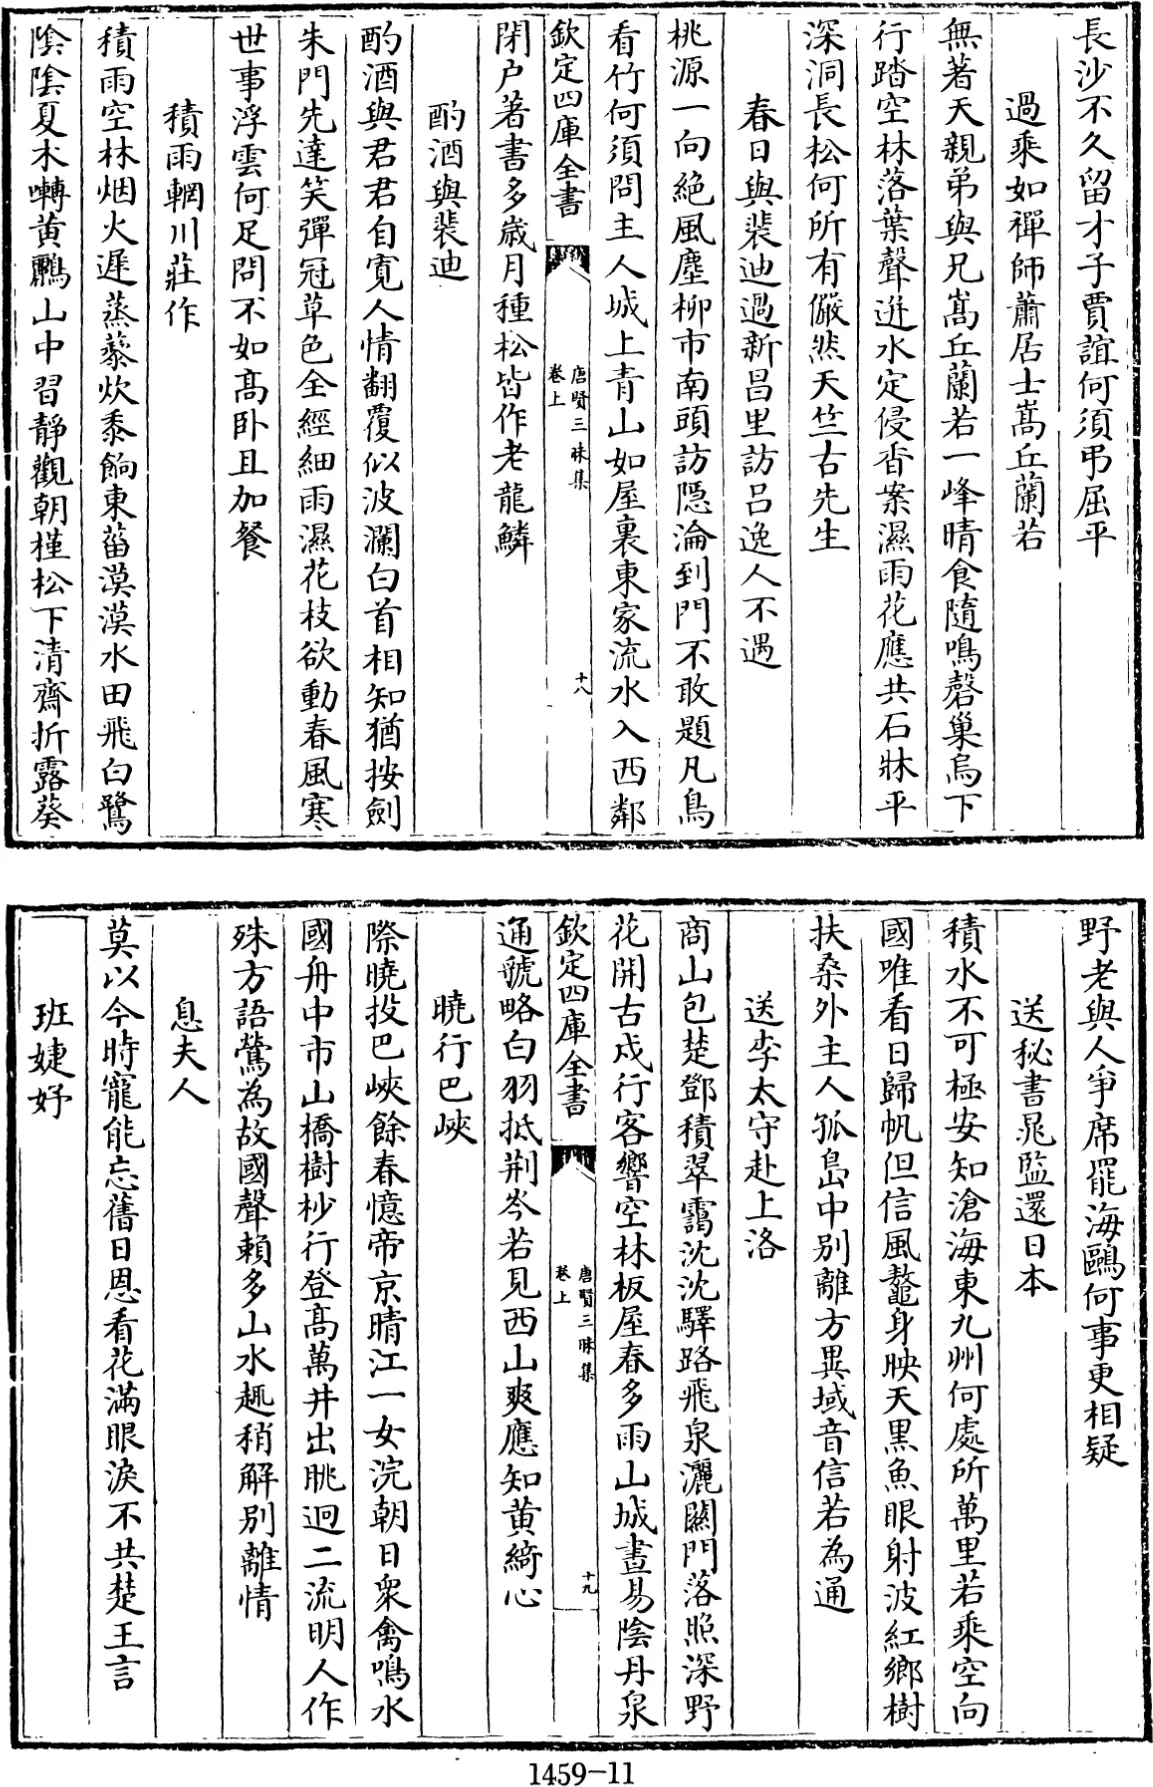 長沙不久留才子賈誼何須弔屈平
過乘如禪師蕭居士嵩丘蘭若
無著天親弟與兄嵩丘蘭若一峰晴食隨鳴磬巢烏下
行踏空林落葉聲迸水定侵香案濕雨花應共石牀平
深洞長松何所有儼然天竺古先生
春日與裴迪過新昌里訪吕逸人不遇
桃源一向絶風塵栁市南頭訪隠淪到門不敢題凡鳥
看竹何須問主人城上青山如屋裏東家流水入西鄰
欽定四庫全書
唐賢三昧集
卷上
十八
閉户著書多歳月種松皆作老龍鱗
酌酒與裴迪
酌酒與君君自寛人情翻覆似波瀾白首相知猶按劍
朱門先達笑彈冠草色全經細雨濕花枝欲動春風寒
世事浮雲何足問不如髙卧且加餐
積雨輞川莊作
積雨空林烟火遲蒸藜炊黍餉東菑漠漠水田飛白鷺
陰陰夏木囀黄鸝山中習静觀朝槿松下清齋折露葵
野老與人爭席罷海鷗何事更相疑
送秘書晁監還日本
積水不可極安知滄海東九州何處所萬里若乘空向
國唯看日歸帆但信風鼇身映天黒魚眼射波紅鄉樹
扶桑外主人孤島中別離方異域音信若為通
送李太守赴上洛
商山包楚鄧積翠靄沈沈驛路飛泉灑闗門落照深野
花開古戍行客響空林板屋春多雨山城晝易陰丹泉
欽定四庫全書
唐賢三昧集
卷上
十九
通虢略白羽抵荆岑若見西山爽應知黄綺心
曉行巴峽
際曉投巴峽餘春憶帝京晴江一女浣朝日衆禽鳴水
國舟中市山橋樹杪行登髙萬井出眺迥二流明人作
殊方語鶯為故國聲賴多山水趣稍解別離情
息夫人
莫以今時寵能忘舊日恩看花滿眼淚不共楚王言
班婕妤
1459-11